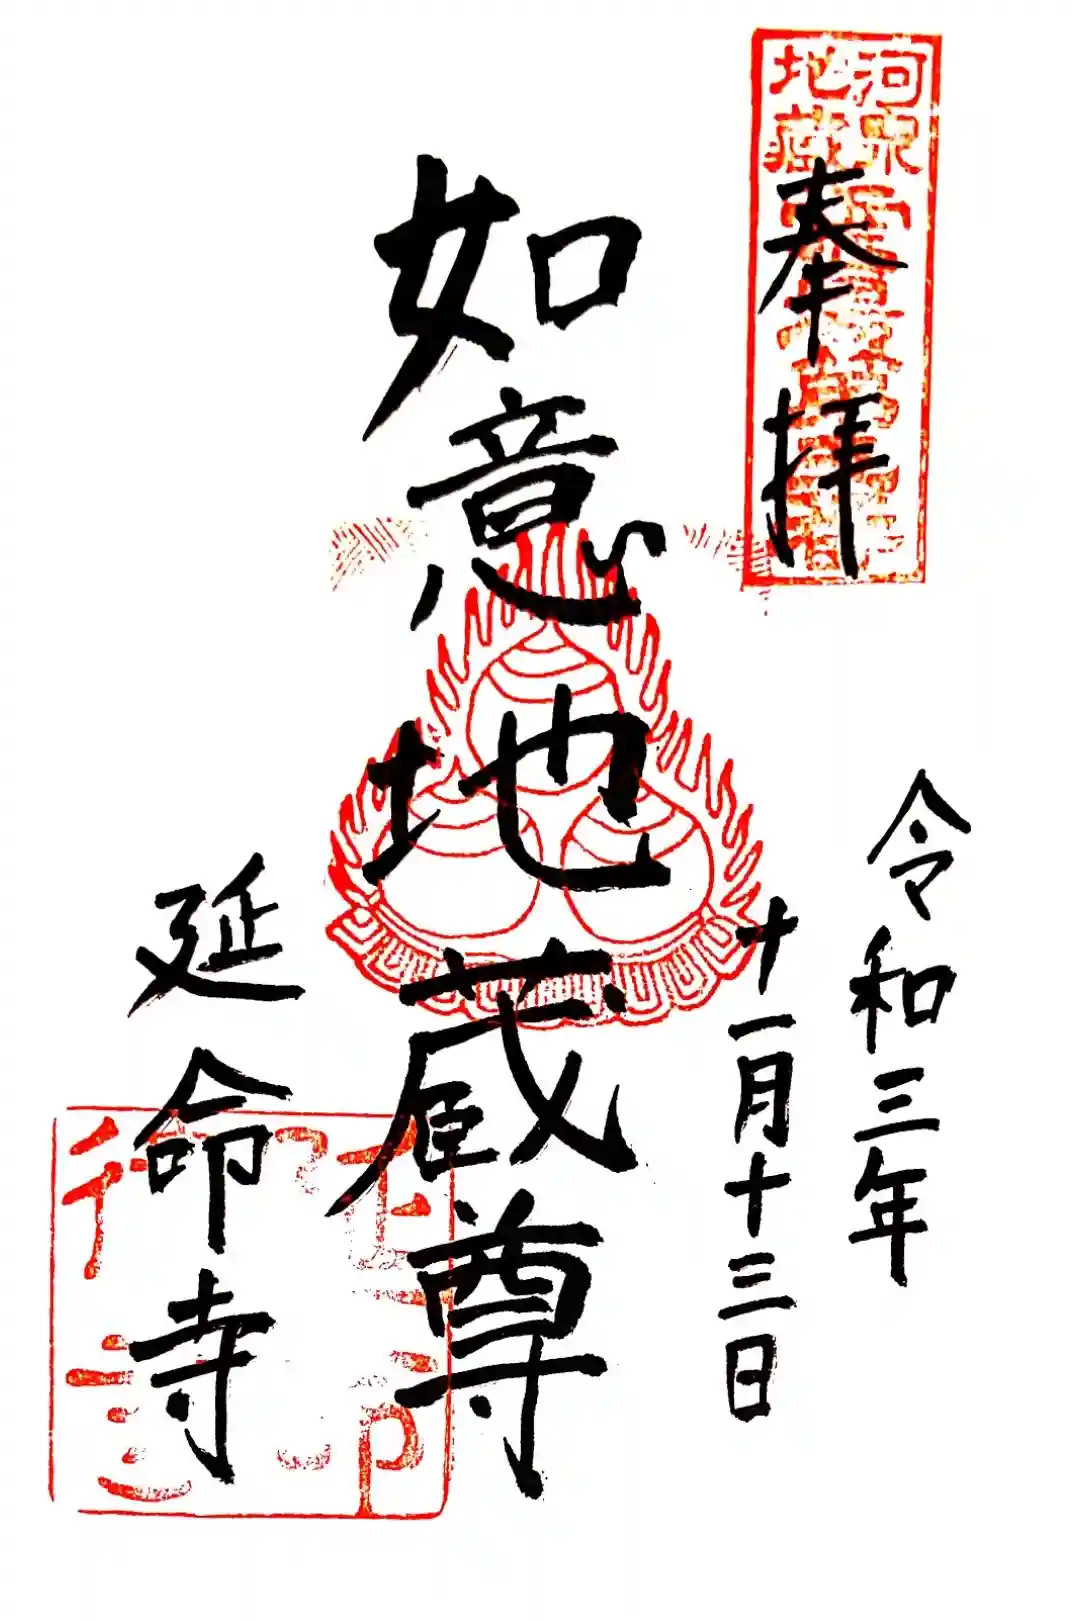 河泉
地蔵
奉拝
令和三年
十一月十三日
如意地蔵尊
延命寺